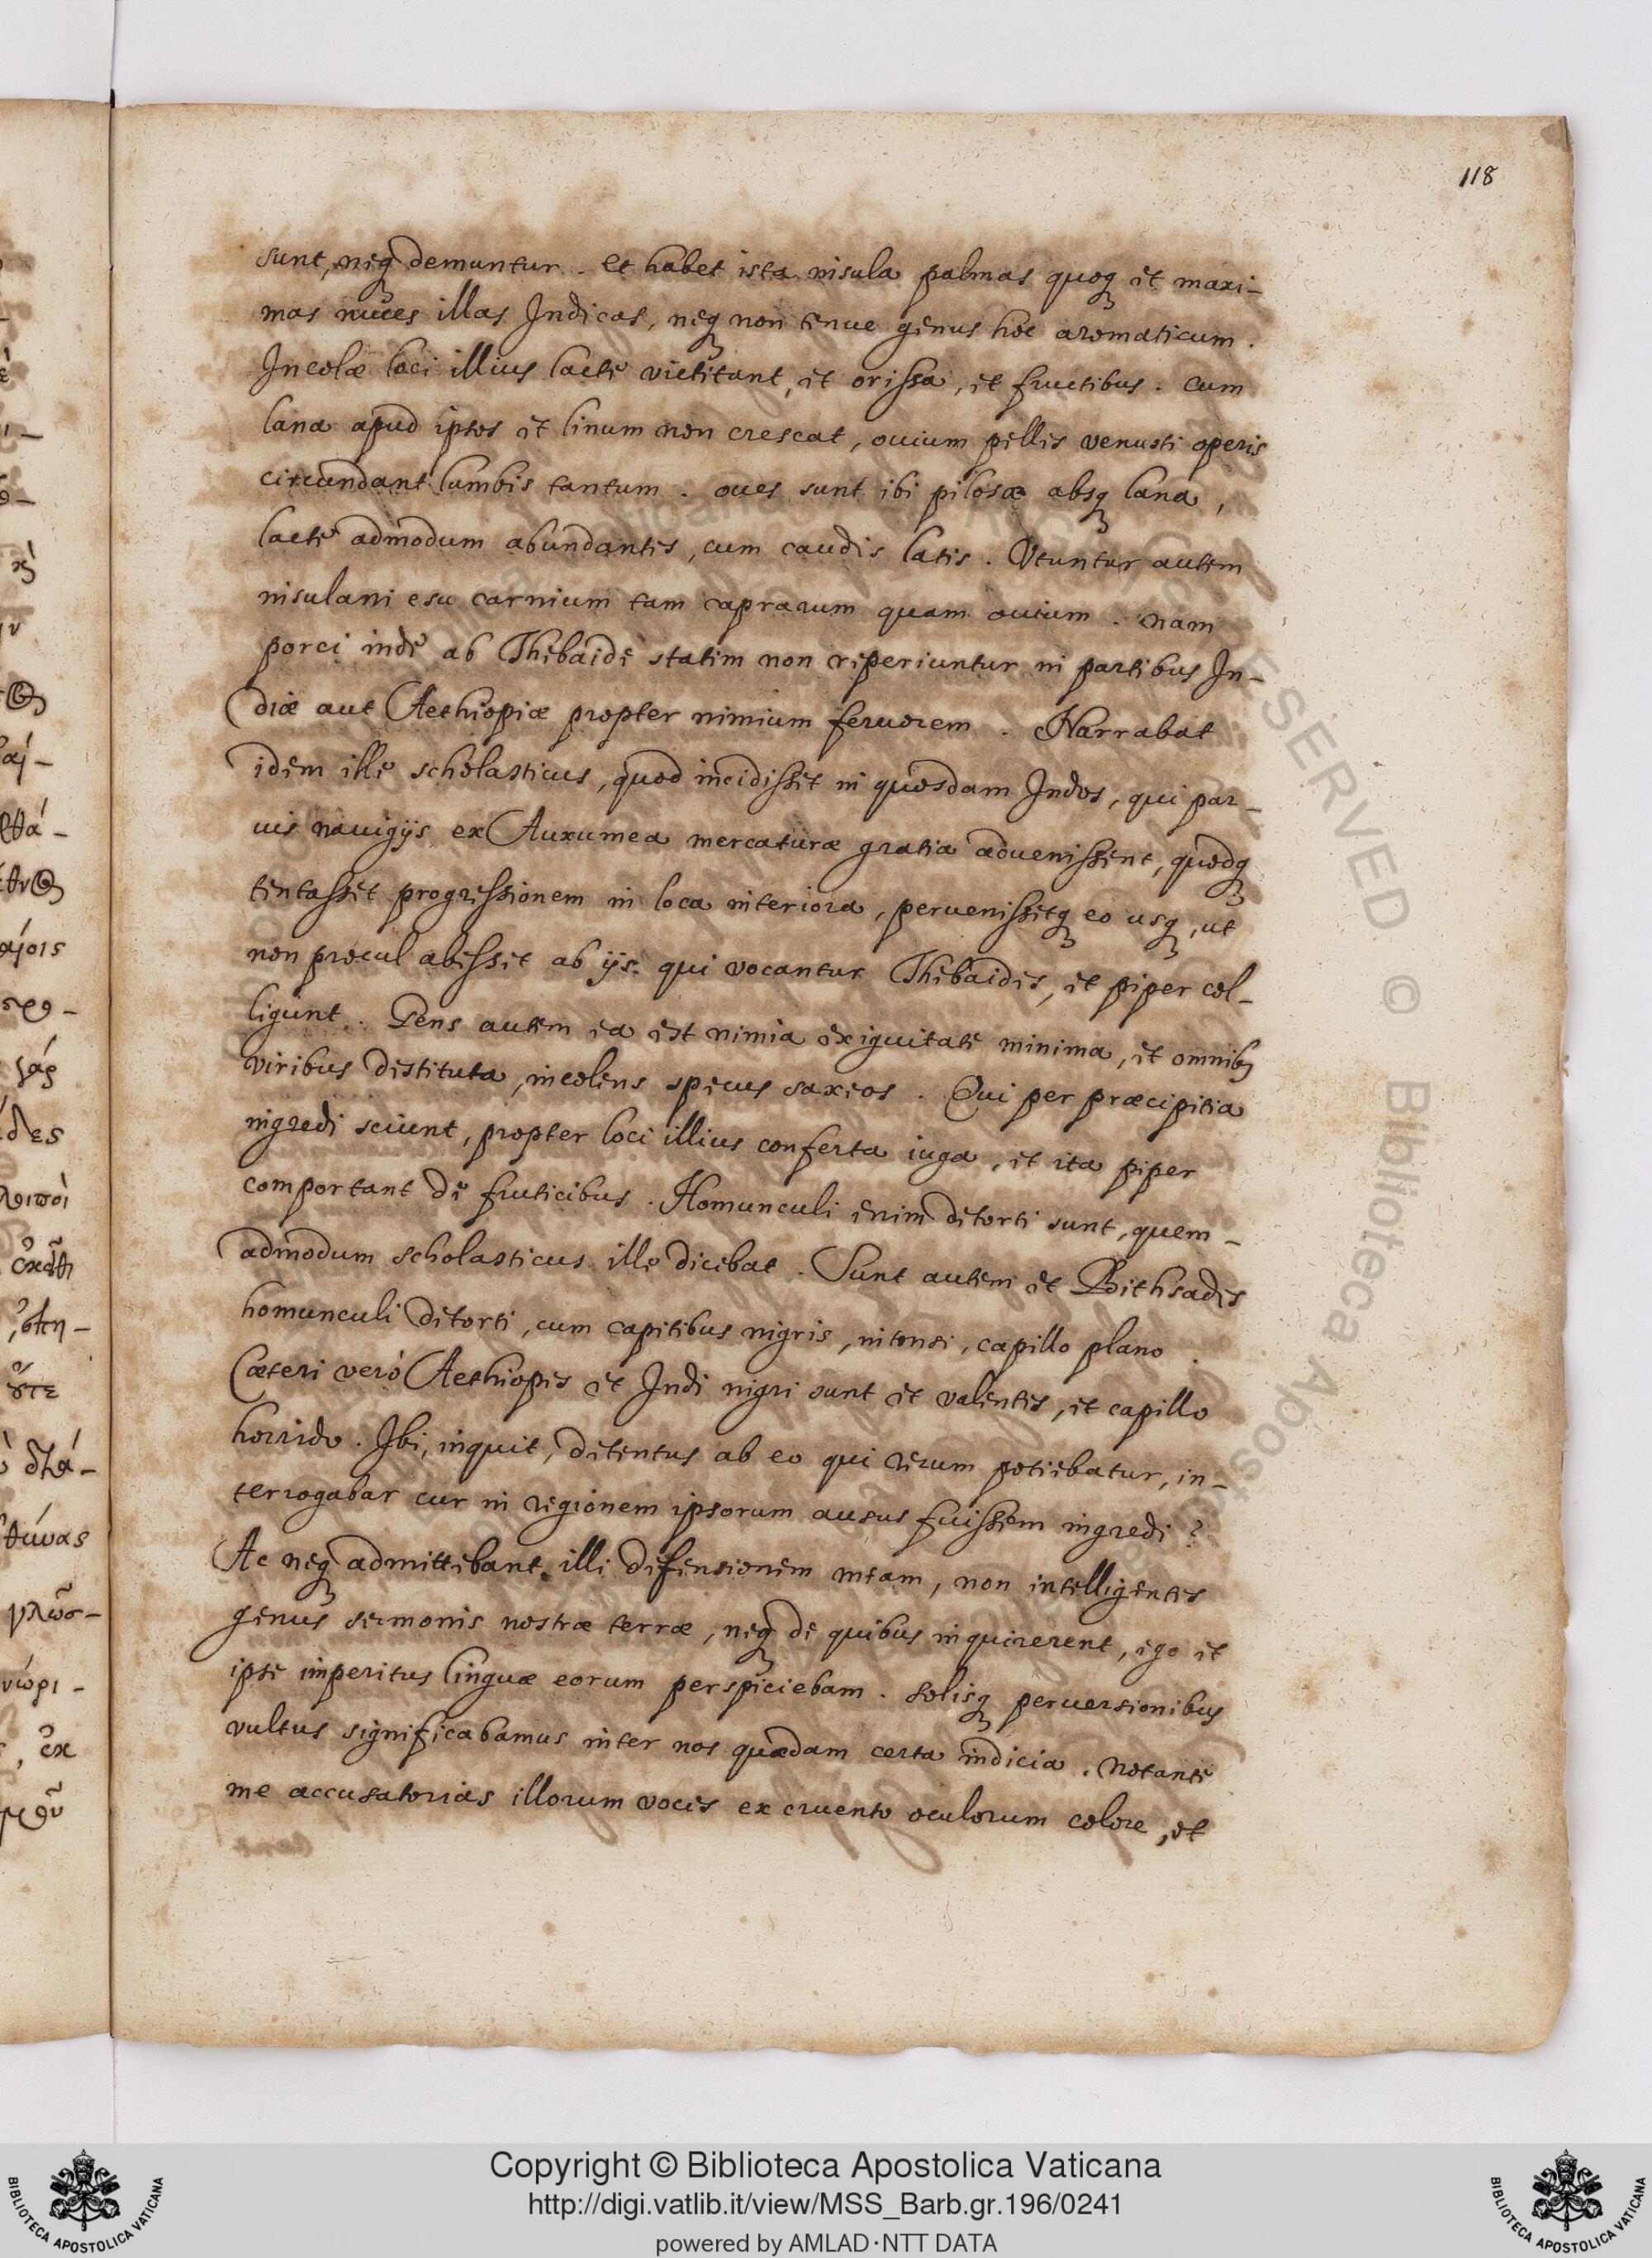 118
sunt, neq; demuntur. Et habet ista insula palmas quoq; et maxi-
mas nuces illas Indicas, neq; non tenue genus hoc aromaticum.
Incolæ loci illius lacte victitant, et orissa, et fructibus. Cum
lana apud ipsos et linum non crescat, ouium pelles venusti operis
circundant lumbis tantum. oues sunt ibi pilosæ absq; lana,
lacte admodum abundantes, cum caudis latis. Vtuntur autem
insulani esu carnium tam caprarum quam ouium. Nam
porci inde ab Thebaide statim non reperiuntur in partibus In-
diæ aut Aethiopiæ propter nimium feruorem. Narrabat
idem ille scholasticus, quod incidisset in quosdam Indos, qui par-
uis nauigijs ex Auxumea mercaturæ gratia aduenissent, quodq;
tentasset progressionem in loca interiora, peruenissetq; eo usq;, ut
non procul abesset ab ijs. qui vocantur Thebaides, et piper col-
ligunt. Gens autem ea est nimia exiguitate minima, et omnib;
viribus destituta, incolens specus saxeos. Qui per præcipitia
ingredi sciunt, propter loci illius conferta iuga, et ita piper
comportant de fruticibus. Homunculi enim detorti sunt, quem-
admodum scholasticus ille dicebat. Sunt autem et Bithsades
homunculi detorti, cum capitibus nigris, intonsi, capillo plano.
Cæteri verò Aethiopes et Indi nigri sunt et valentes, et capillo
horrido. Ibi, inquit, detentus ab eo qui rerum potiebatur, in-
terrogabar cur in regionem ipsorum ausus fuissem ingredi?
Ac neq; admittebant illi defensionem meam, non intelligentes
genus sermonis nostræ terræ, neq; de quibus inquirerent, ego et
ipse imperitus linguæ eorum perspiciebam. Solisq; peruersionibus
vultus significabamus inter nos quædam certa indicia. Notante
me accusatorias illorum voces ex cruento oculorum colore, et
Copyright © Biblioteca Apostolica Vaticana
http://digi.vatlib.it/view/MSS_Barb.gr.196/0241
powered by AMLAD·NTT DATA
BIBLIOTECA APOSTOLICA VATICANA
BIBLIOTECA APOSTOLICA VATICANA